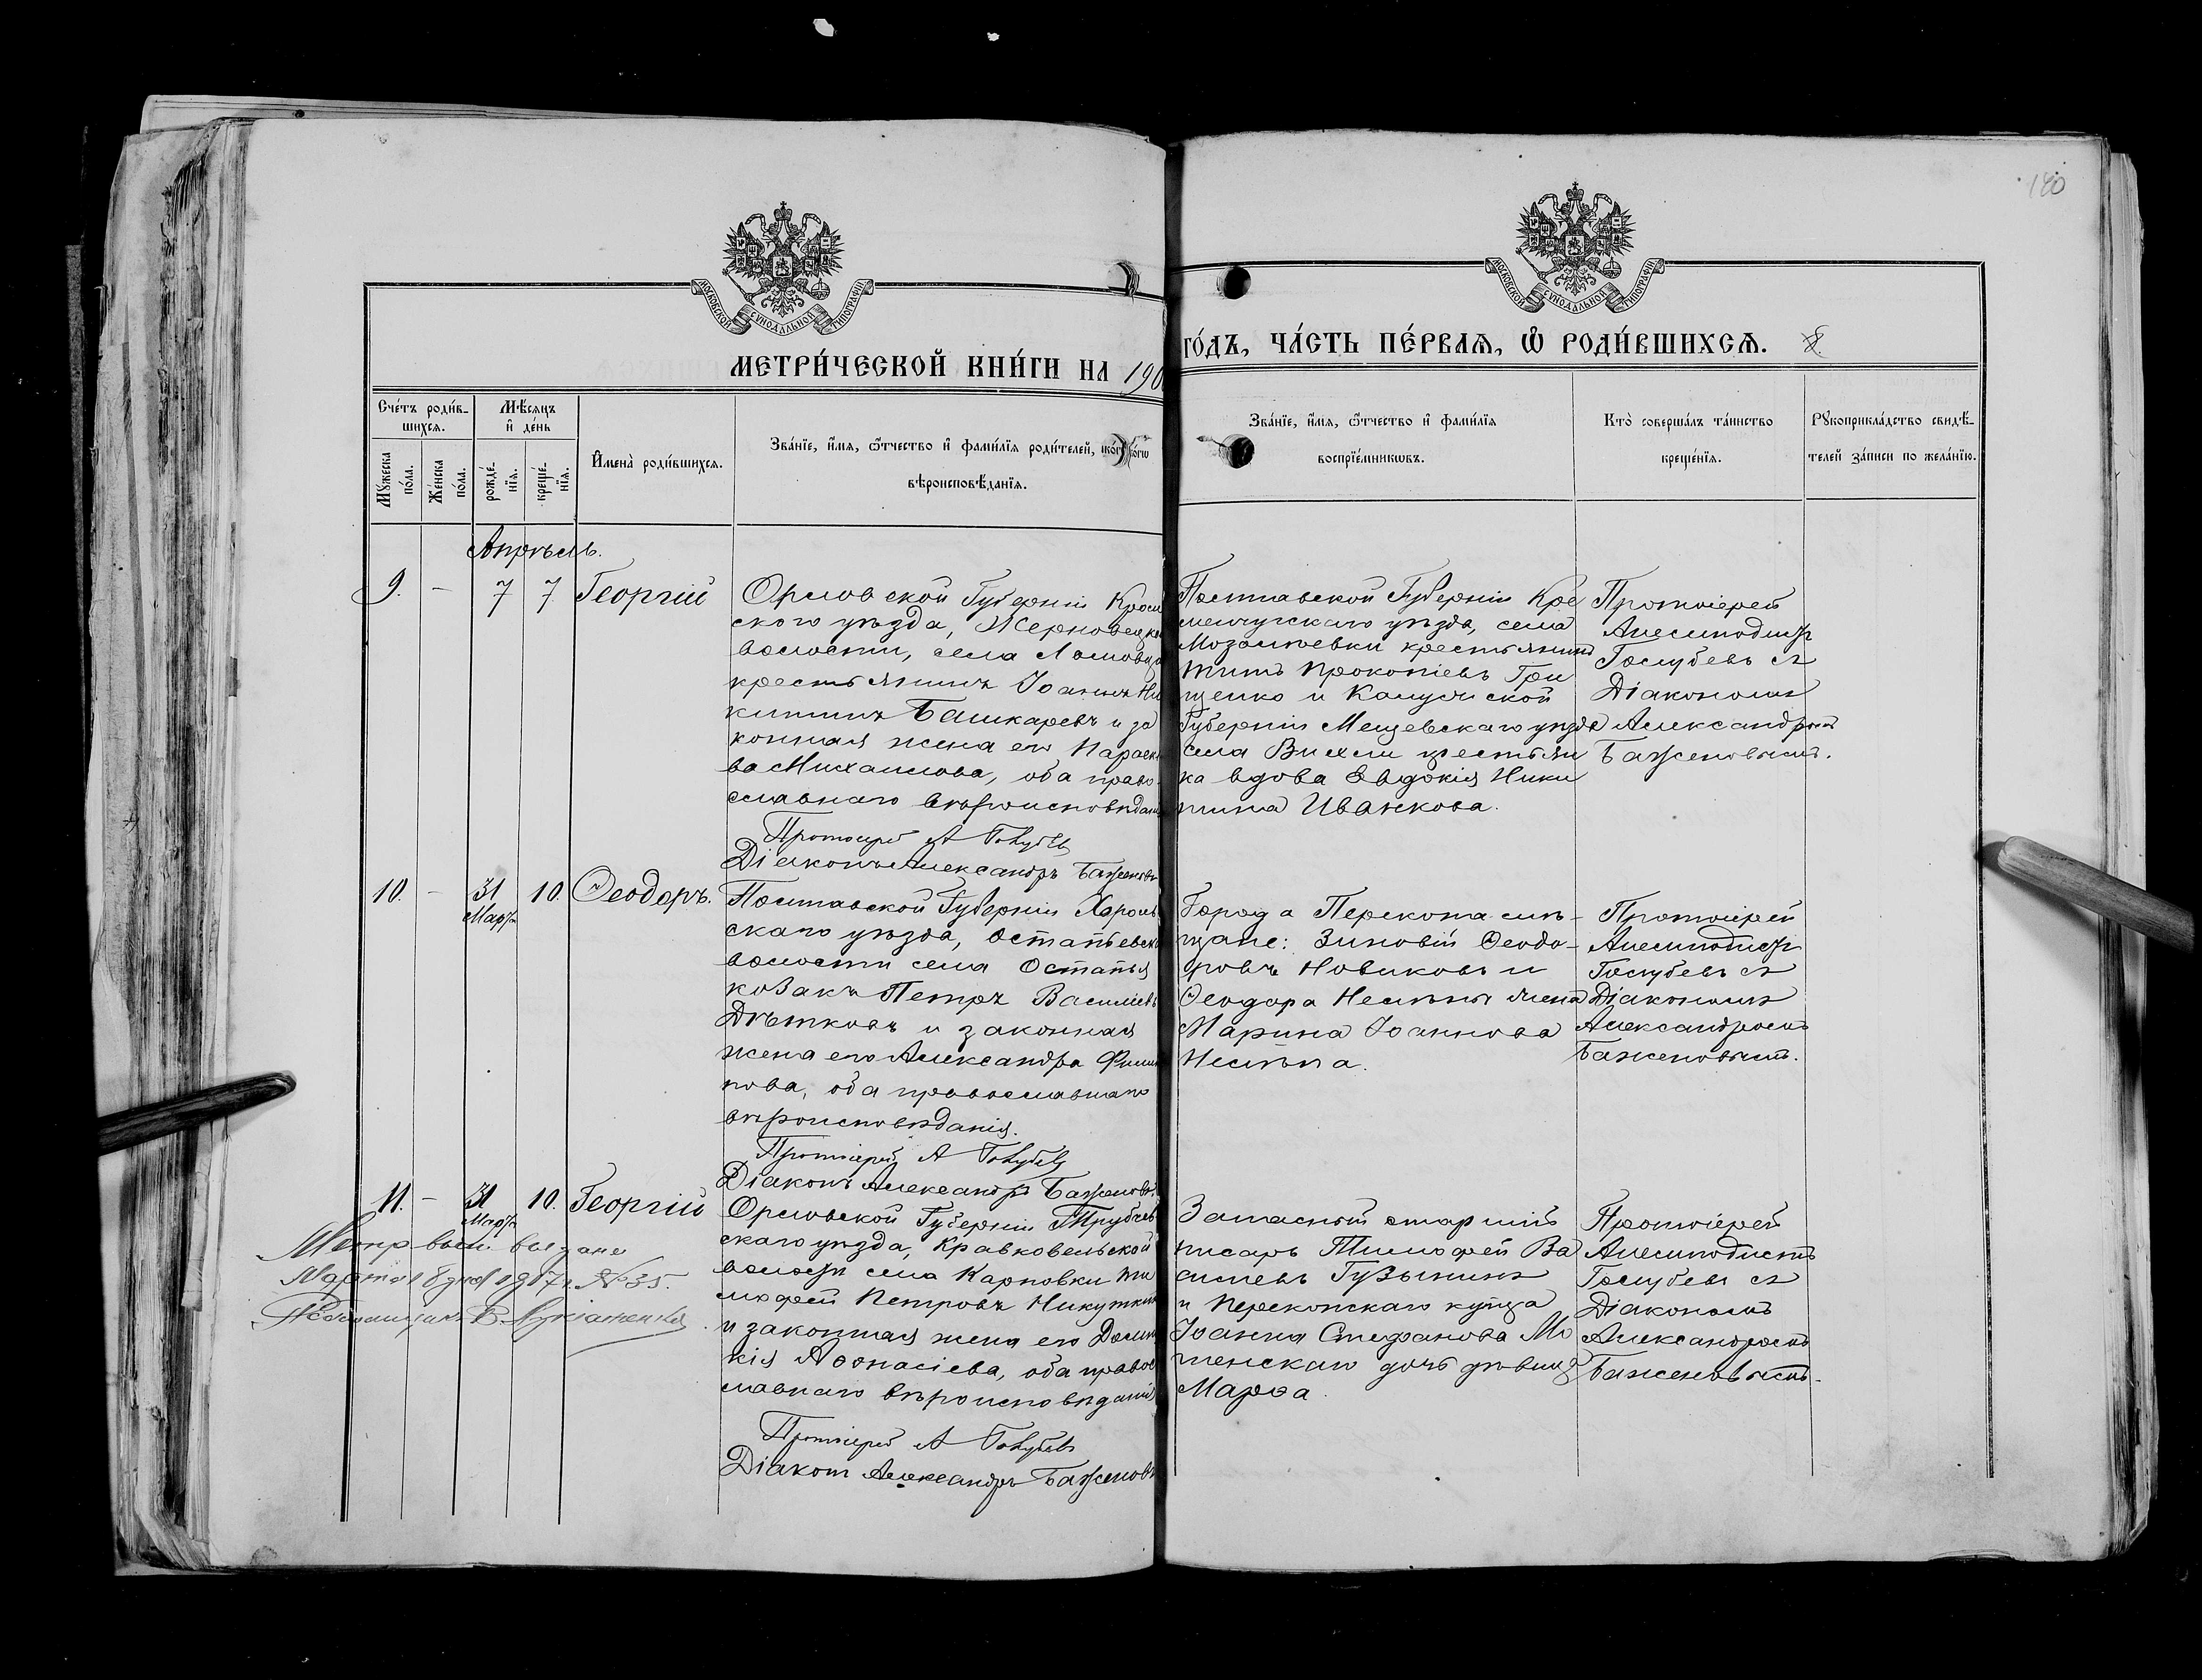 180
МОСКОВСКОЙ СѴНОДАЛЬНОЙ ТИПОГРАФІИ
МОСКОВСКОЙ СѴНОДАЛЬНОЙ ТИПОГРАФІИ
МЕТРИ́ЧЕСКОЙ КНИ́ГИ НА 190
ГО́ДЪ, ЧА́СТЬ ПЕ́РВАЯ, Ѿ РОДИ́ВШИХСЯ.
Сче́тъ роди́в-
шихся.
Мѣ́сяцъ
и҆ де́нь
Мꙋ́жеска
по́ла.
Же́нска
по́ла.
рожде́-
нїя.
креще́-
нїя.
И҆мена̀ роди́вшихся.
Зва́нїе, и҆́мя, ѻ҆́тчество и҆ фами́лїя роди́телей,
вѣроисповѣ́данїя.
Зва́нїе, и҆́мя, ѻ҆́тчество и҆ фами́лїя
воспрїе́мникѡвъ.
Кто̀ соверша́лъ та́инство
креще́нїя.
Рꙋкоприкла́дство свидѣ́-
телей за́писи по жела́нїю.
Апрѣль.
9. - 7 7 Георгій
Орловской Губерніи Кром
ского уѣзда, Жерновецкой
волости, села Ломовца
крестьянинъ Іоаннъ Ни
китинъ Башкаревъ и за
конная жена его Параске
ва Михаилова, оба право
славнаго вѣроисповѣданія
Протоіерей А Голубевъ
Діаконъ Александръ Баженовъ
Полтавской Губерніи Кре
менчугскаго уѣзда, села
крестьянинъ
Титъ Прокопіевъ Гри
щенко и Калужской
Губерніи Мещевскаго уѣзда
села крестьян
ка вдова Евдокія Ники
тина Иванкова.
Протоіерей
Анемподистъ
Голубевъ съ
Діакономъ
Александромъ
Баженовымъ.
10. - 31 10. Ѳеодоръ.
Март
Полтавской Губерніи Хароль
скаго уѣзда, Остапьевской
волости села Остапья
козакъ Петръ Василіевъ
Дѣтковъ и законная
жена его Александра Филип
пова, оба православнаго
вѣроисповѣданія.
Протоіерей А Голубевъ
Діаконъ Александръ Баженовъ
Города Перекопа мѣ-
щане: Зиновій Ѳеодо-
ровъ Новиковъ и
Ѳеодора жена
Марина Іоаннова
Протоіерей
Анемподистъ
Голубевъ съ
Діакономъ
Александромъ
Баженовымъ.
11. - 31 10. Георгій
Март
Метр. вып. выдана
Марта 18 дня 1917 г. № 35.
Орловской Губерніи Трубчев
скаго уѣзда,
волости села Карповки Ти
мофей Петровъ Никуткинъ
и законная жена его
кія Аѳонасіева, оба правос
лавнаго вѣроисповѣданія
Протоіерей А Голубевъ
Діаконъ Александръ Баженовъ
Запасной старшій
писарь Тимофей Ва
силіевъ
и Перекопскаго купца
Іоанна Стефанова Мо
дочь дѣвица
Марѳа.
Протоіерей
Анемподистъ
Голубевъ съ
Діакономъ
Александромъ
Баженовымъ.